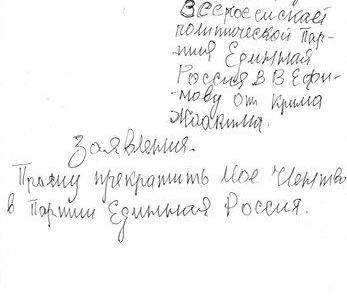 Всероссийскай
политической Пар-
тия Единная
Россия В В Ефи-
мову от Крима
Жоакима.
Заявления.
Прошу прекратить мое Членство
в Партии Единная Россия.